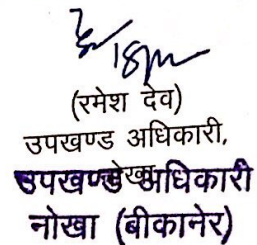 (रमेश देव)
उपखण्ड अधिकारी,
नोखा
उपखण्ड अधिकारी
नोखा (बीकानेर)